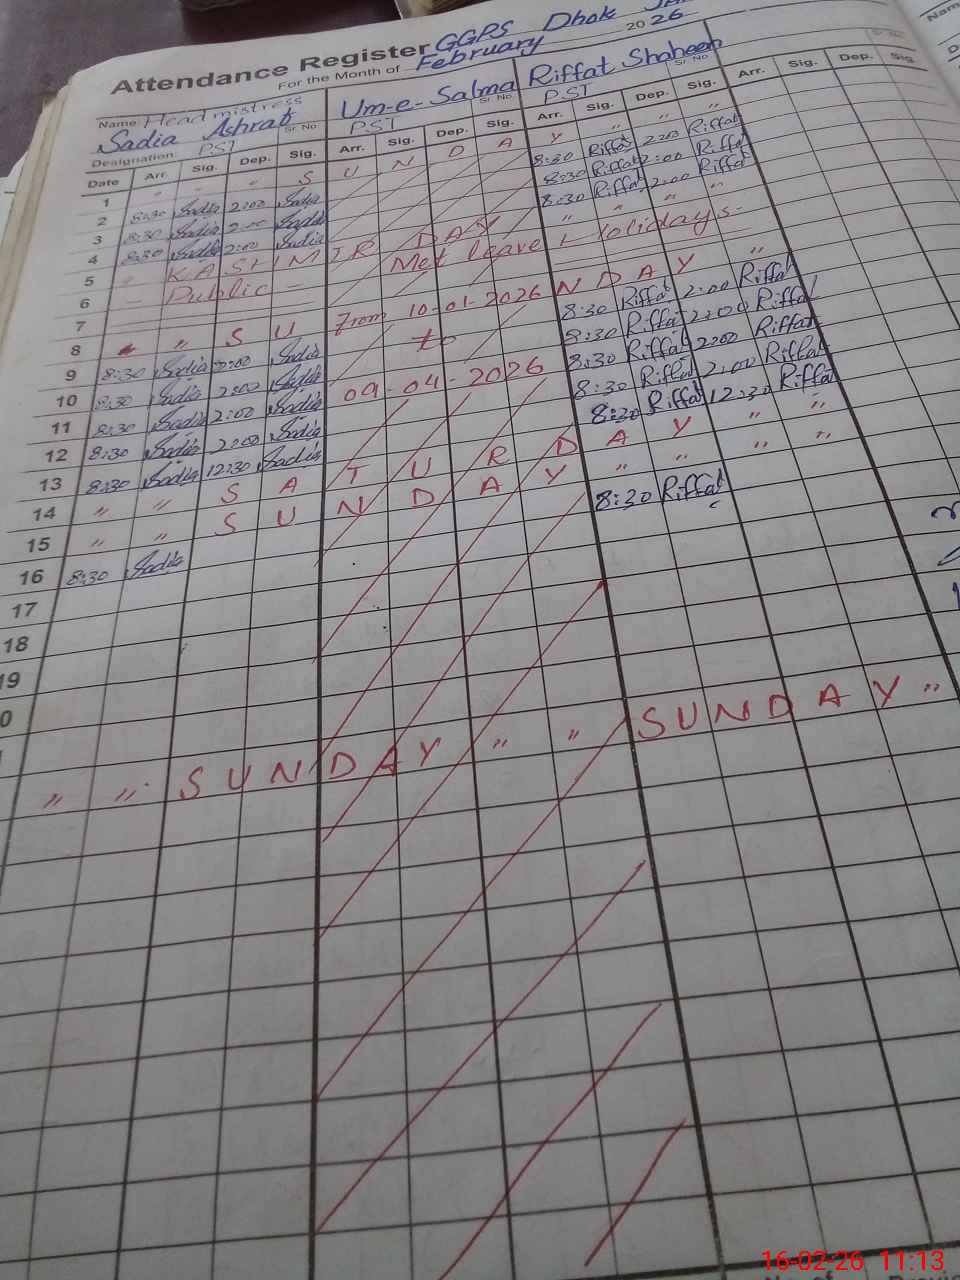 Attendance Register GGPS Dhok
For the Month of February 2026
Name: Headmistress Um-e-Salma Riffat Shaheen
Sadia Ashraf Sr. No. PST Sr. No. PST Sr. No.
Designation: PST
Date Arr. Sig. Dep. Sig. Arr. Sig. Dep. Sig. Arr. Sig. Dep. Sig. Arr. Sig. Dep. Sig.
1 " " " S U N D A Y " " "
2 8:30 Sadia 2:00 Sadia 8:30 Riffat 2:00 Riffat
3 8:30 Sadia 2:00 Sadia 8:30 Riffat 2:00 Riffat
4 8:30 Sadia 2:00 Sadia 8:30 Riffat 2:00 Riffat
5 " K A S H M I R D A Y " " " "
6 - Public - Met leave + Holidays-
7 From 10-01-2026
8 " " S U N D A Y "
9 8:30 Sadia 2:00 Sadia to 8:30 Riffat 2:00 Riffat
10 8:30 Sadia 2:00 Sadia 09-04-2026 8:30 Riffat 2:00 Riffat
11 8:30 Sadia 2:00 Sadia 8:30 Riffat 2:00 Riffat
12 8:30 Sadia 2:00 Sadia 8:30 Riffat 2:00 Riffat
13 8:30 Sadia 12:30 Sadia 8:30 Riffat 12:30 Riffat
14 " " S A T U R D A Y " "
15 " " S U N D A Y " " " "
16 8:30 Sadia 8:30 Riffat
17
18
19
0
" " S U N D A Y " " S U N D A Y "
16-02-26 11:13